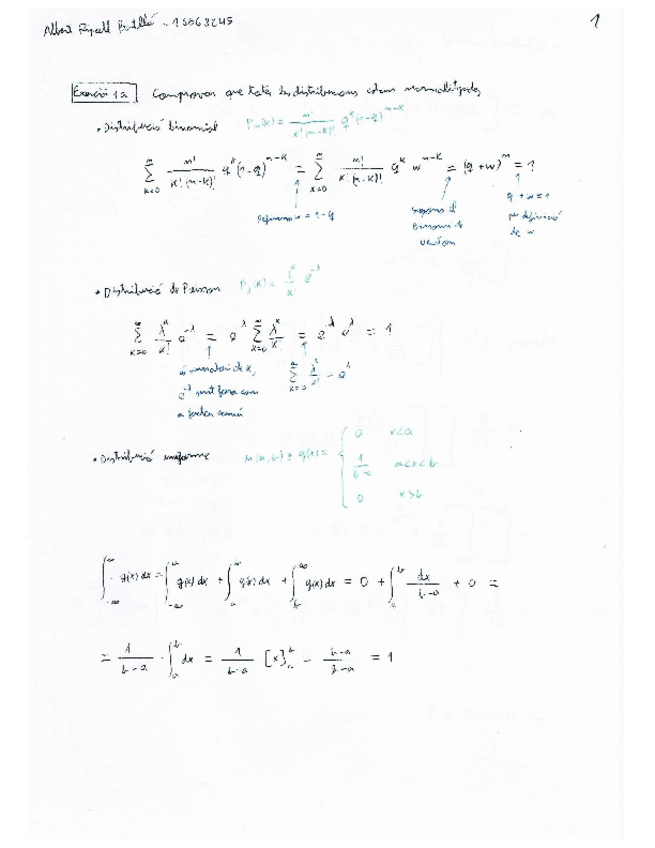 Albert 1
Exercici 1a Comprovar que totes les distribucions estan normalitzades
• Distribució binomial Pₙ(k) = n!/(k!(n-k)!) q^k (1-q)^(n-k)
∑_(k=0)^n n!/(k!(n-k)!) q^k (1-q)^(n-k) = ∑_(k=0)^n n!/(k!(n-k)!) q^k w^(n-k) = (q+w)^n = 1
Definim w = 1-q
segons el
Binomi de
Newton
q + w = 1
per definició
de w
• Distribució de Poisson P_λ(k) = λ^k/k! e^(-λ)
∑_(k=0)^∞ λ^k/k! e^(-λ) = e^(-λ) ∑_(k=0)^∞ λ^k/k! = e^(-λ) e^λ = 1
és sumatori de k,
e^(-λ) surt fora com
a factor comú
∑_(k=0)^∞ λ^k/k! = e^λ
• Distribució uniforme u(a,b) ≡ g(x) =
0 x<a
1/(b-a) a<x<b
0 x>b
∫_(-∞)^∞ g(x) dx = ∫_(-∞)^a g(x) dx + ∫_a^b g(x) dx + ∫_b^∞ g(x) dx = 0 + ∫_a^b dx/(b-a) + 0 =
= 1/(b-a) · ∫_a^b dx = 1/(b-a) [x]_a^b = (b-a)/(b-a) = 1